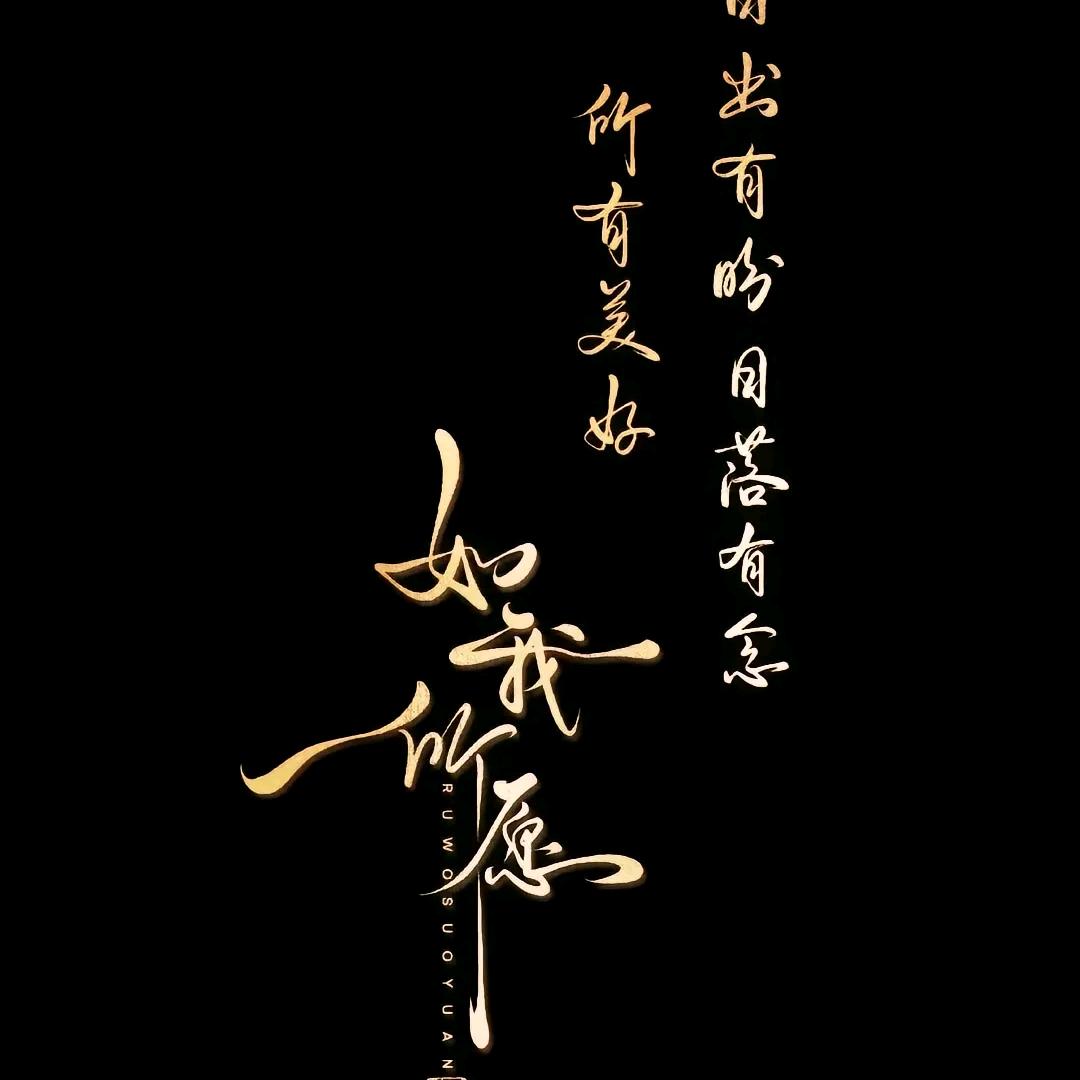 日出有盼 日落有念
所有美好
如我所愿
RUWOSUOYUAN